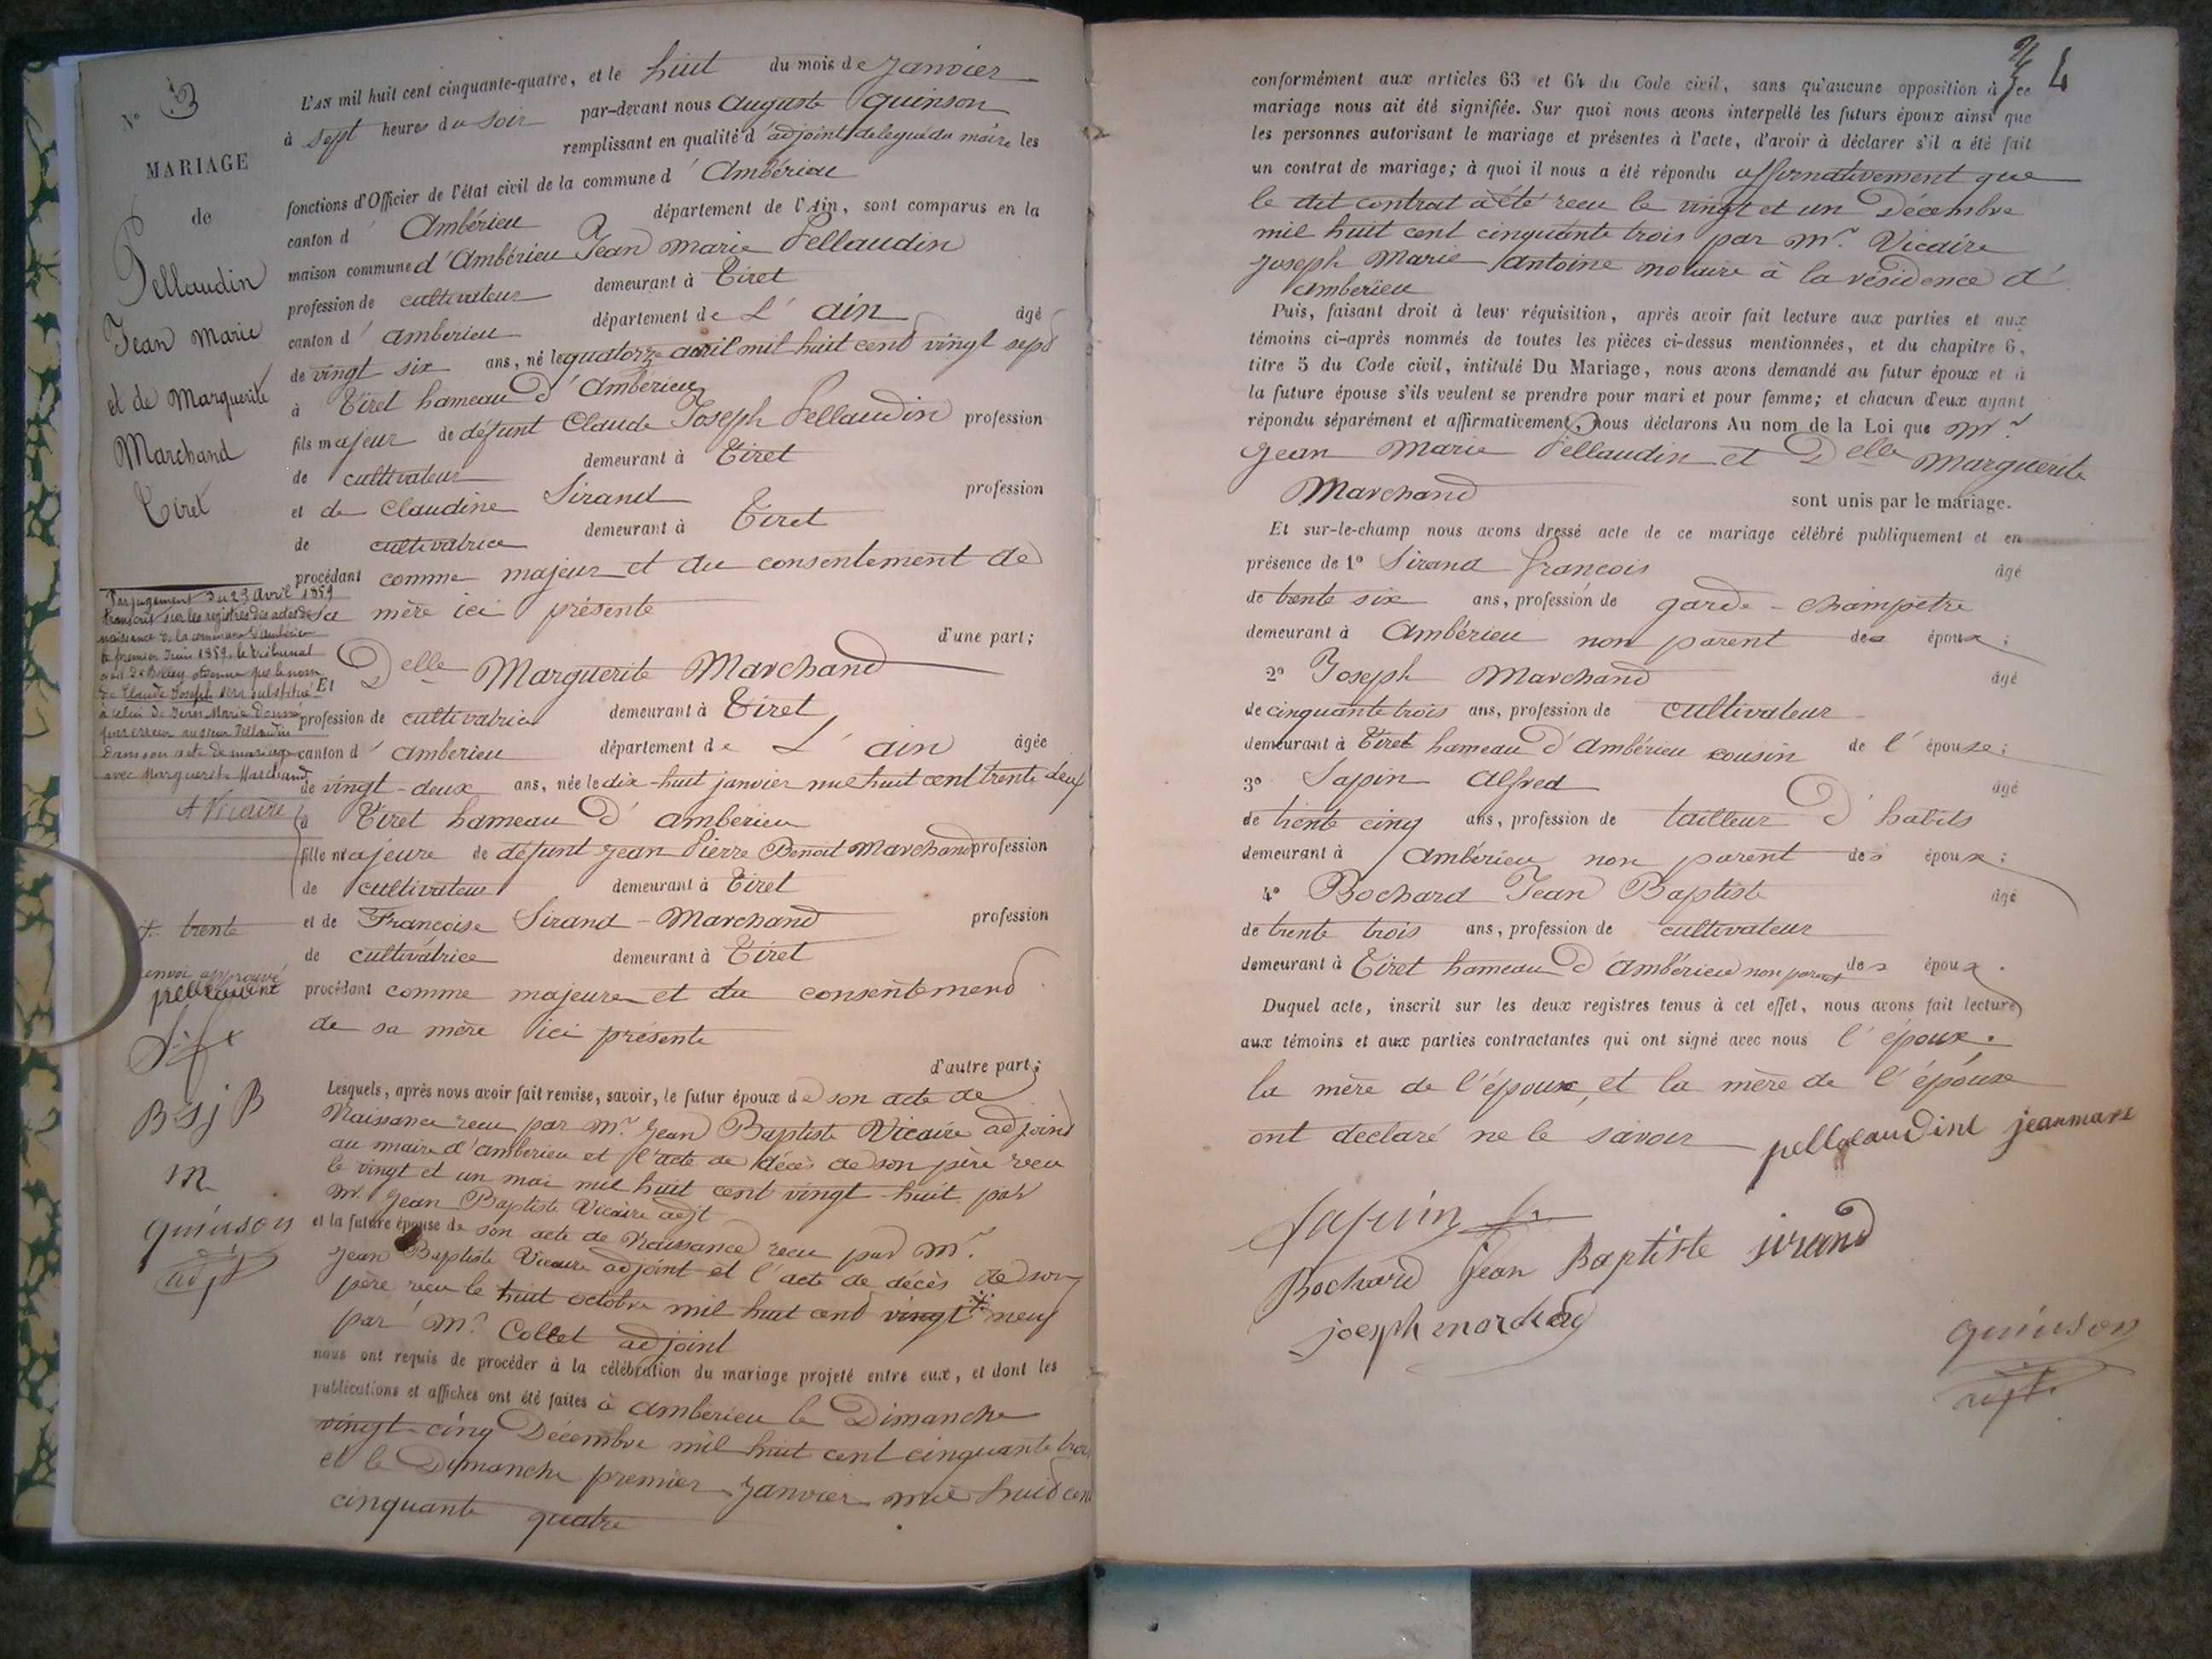 N.º 3
MARIAGE
de
Pellaudin
Jean Marie
et de Marguerite
Marchand
Tiret
L'AN mil huit cent cinquante-quatre, et le huit du mois de Janvier
à sept heures du soir par-devant nous Auguste Quinson
remplissant en qualité d'adjoint délégué du maire les
fonctions d'Officier de l'état civil de la commune d'Ambérieu
canton d'Ambérieu département de l'Ain, sont comparus en la
maison commune d'Ambérieu Jean Marie Pellaudin
profession de cultivateur demeurant à Tiret
canton d'amberieu département de L'ain âgé
de vingt six ans, né le quatorze avril mil huit cent vingt sept
à Tiret hameau d'amberieu
fils majeur de défunt Claude Joseph Pellaudin profession
de cultivateur demeurant à Tiret
et de Claudine Sirand profession
de cultivatrice demeurant à Tiret
procédant comme majeur et du consentement de
sa mère ici présente
d'une part;
Par jugement du 23 avril 1859
transcrit sur les registres des actes de
naissance de la commune d'ambérieu
le premier Juin 1859, le tribunal
civil de Belley ordonne que le nom
de Claude Joseph sera substitué
à celui de Jean Marie donné
par erreur au sieur Pellaudin
dans son acte de mariage
avec Marguerite Marchand
A Vicaire
Et Delle Marguerite Marchand
profession de cultivatrice demeurant à Tiret
canton d'amberieu département de L'ain âgée
de vingt-deux ans, née le dix-huit janvier mil huit cent trente deux
à Tiret hameau d'amberieu
fille majeure de défunt Jean Pierre Benoit Marchand profession
de cultivateur demeurant à Tiret
et de Françoise Sirand-Marchand profession
de cultivatrice demeurant à Tiret
procédant comme majeure et du consentement
de sa mère ici présente
d'autre part;
trente
renvoi approuvé
pellaudint
B S J B
m
quinson
adjt
Lesquels, après nous avoir fait remise, savoir, le futur époux de son acte de
Naissance reçu par Mr. Jean Baptiste Vicaire adjoint
au maire d'amberieu et l'acte de décès de son père reçu
le vingt et un mai mil huit cent vingt-huit par
Mr. Jean Baptiste Vicaire adjt
et la future épouse de son acte de Naissance reçu par Mr.
Jean Baptiste Vicaire adjoint et l'acte de décès de son
père reçu le huit octobre mil huit cent vingt neuf
par Mr. Collet adjoint
nous ont requis de procéder à la célébration du mariage projeté entre eux, et dont les
publications et affiches ont été faites à amberieu le Dimanche
vingt-cinq Décembre mil huit cent cinquante trois
et le Dimanche premier Janvier mil huit cent
cinquante quatre
4
conformément aux articles 63 et 64 du Code civil, sans qu'aucune opposition à ce
mariage nous ait été signifiée. Sur quoi nous avons interpellé les futurs époux ainsi que
les personnes autorisant le mariage et présentes à l'acte, d'avoir à déclarer s'il a été fait
un contrat de mariage; à quoi il nous a été répondu affirmativement que
le dit contrat a été reçu le vingt et un Décembre
mil huit cent cinquante trois par Mr. Vicaire
Joseph Marie Antoine notaire à la résidence d'
amberieu
Puis, faisant droit à leur réquisition, après avoir fait lecture aux parties et aux
témoins ci-après nommés de toutes les pièces ci-dessus mentionnées, et du chapitre 6,
titre 5 du Code civil, intitulé Du Mariage, nous avons demandé au futur époux et à
la future épouse s'ils veulent se prendre pour mari et pour femme; et chacun d'eux ayant
répondu séparément et affirmativement, nous déclarons Au nom de la Loi que Mr.
Jean Marie Pellaudin et Delle Marguerite
Marchand sont unis par le mariage.
Et sur-le-champ nous avons dressé acte de ce mariage célébré publiquement et en
présence de 1º Sirand François âgé
de trente six ans, profession de garde-champêtre
demeurant à Ambérieu non parent des époux;
2º Joseph Marchand âgé
de cinquante trois ans, profession de cultivateur
demeurant à Tiret hameau d'Ambérieu cousin de l'épouse;
3º Sapin Alfred âgé
de trente cinq ans, profession de tailleur d'habits
demeurant à Ambérieu non parent des époux;
4º Bochard Jean Baptiste âgé
de trente trois ans, profession de cultivateur
demeurant à Tiret hameau d'Ambérieu non parent des époux.
Duquel acte, inscrit sur les deux registres tenus à cet effet, nous avons fait lecture
aux témoins et aux parties contractantes qui ont signé avec nous l'époux.
la mère de l'époux, et la mère de l'épouse
ont déclaré ne le savoir pellaudint jeanmari
Sapin
Bochard Jean Baptiste sirand
joesph marchand
quinson
adjt.